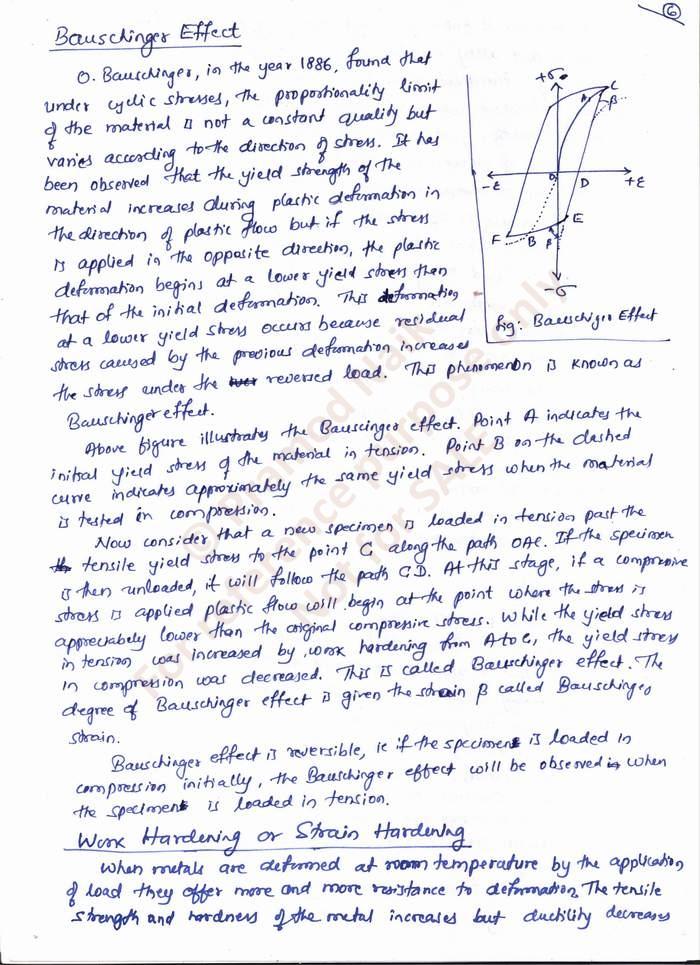 6
Bauschinger Effect
O. Bauschinger, in the year 1886, found that
under cyclic stresses, the proportionality limit
of the material is not a constant quality but
varies according to the direction of stress. It has
been observed that the yield strength of the
material increases during plastic deformation in
the direction of plastic flow but if the stress
is applied in the opposite direction, the plastic
deformation begins at a lower yield stress than
that of the initial deformation. This deformation
at a lower yield stress occurs because residual
stress caused by the previous deformation increases
the stress under the reversed load. This phenomenon is known as
Bauschinger effect.
+σ
C
A
β
-ε
O
D
+ε
E
F
B
B
-σ
fig: Bauschiger Effect
Above figure illustrates the Bauscinger effect. Point A indicates the
initial yield stress of the material in tension. Point B on the dashed
curve indicates approximately the same yield stress when the material
is tested in compression.
Now consider that a new specimen is loaded in tension past the
tensile yield stress to the point C along the path OAC. If the specimen
is then unloaded, it will follow the path CD. At this stage, if a compressive
stress is applied plastic flow will begin at the point where the stress is
appreciabely lower than the original compressive stress. While the yield stress
in tension was increased by work hardening from A to C, the yield stress
in compression was decreased. This is called Bauschinger effect. The
degree of Bauschinger effect is given the strain β called Bauschinger
strain.
Bauschinger effect is reversible, ie if the specimen is loaded in
compression initially, the Bauschinger effect will be observed when
the specimen is loaded in tension.
Work Hardening or Strain Hardening
When metals are deformed at room temperature by the application
of load they offer more and more resistance to deformation. The tensile
strength and hardness of the metal increases but ductility decreases
© Pramod Naik
For reference purpose only
Not for SALE